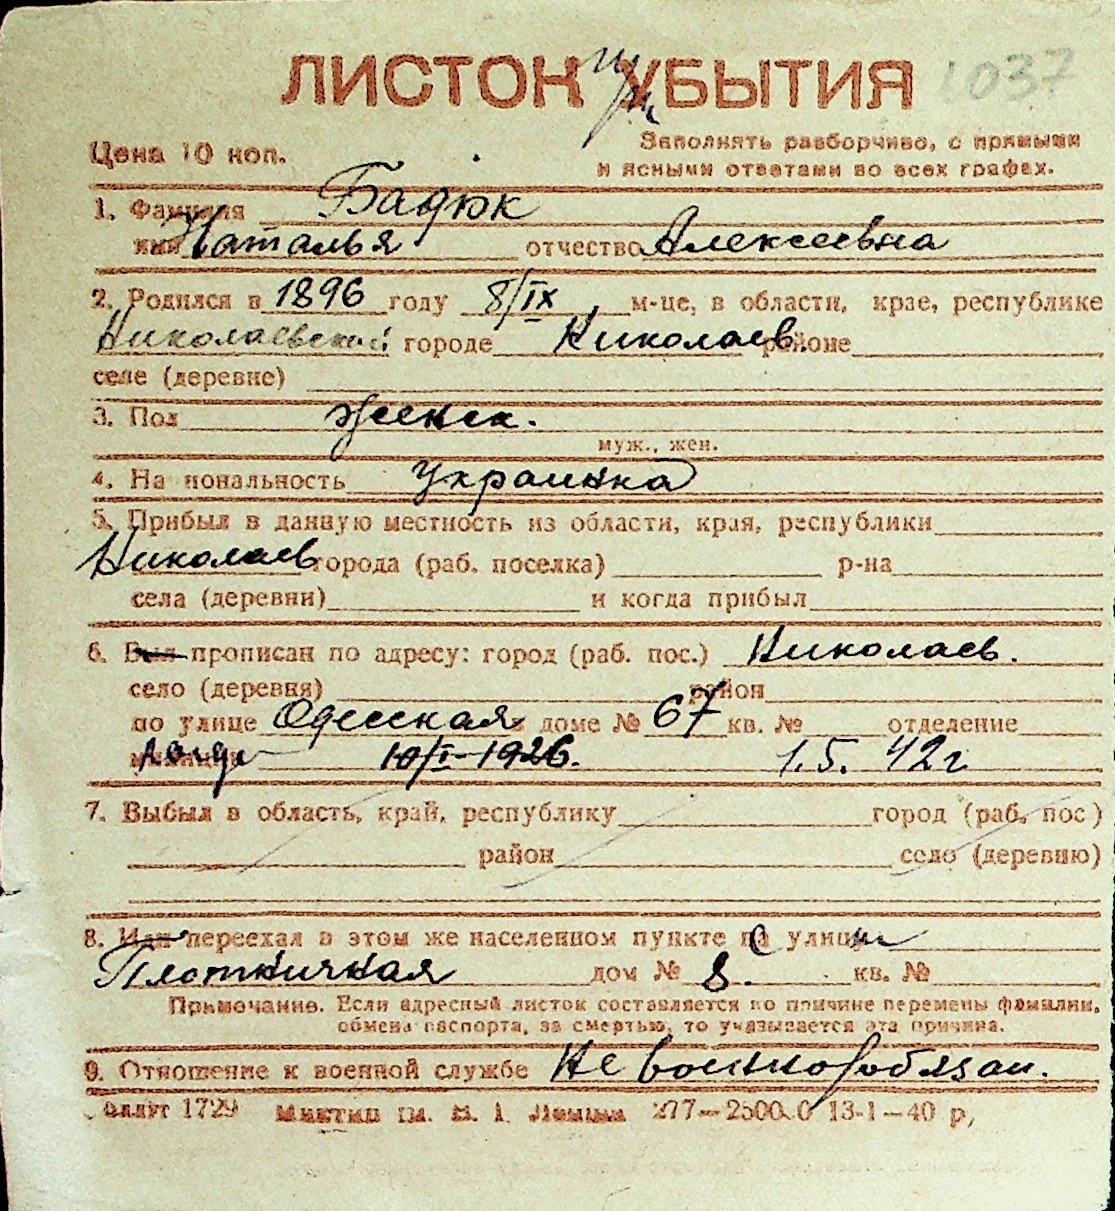 ЛИСТОК УБЫТИЯ 1037
Цена 10 коп.
Заполнять разборчиво, с прямыми
и ясными ответами во всех графах.
1. Фамилия Бадюк
имя Наталья отчество Алексеевна
2. Родился в 1896 году 8/IX м-це, в области, крае, республике
Николаевской городе Николаев. районе
селе (деревне)
3. Пол женск.
муж., жен.
4. Национальность украинка
5. Прибыл в данную местность из области, края, республики
Николаев города (раб. поселка) р-на
села (деревни) и когда прибыл
6. Был прописан по адресу: город (раб. пос.) Николаев.
село (деревня) район
по улице Одесская доме № 67 кв. № отделение
милиции 10/I-1926. 1.5.42г
7. Выбыл в область, край, республику город (раб. пос)
район село (деревню)
8. Или переехал в этом же населенном пункте с улицы
Плотничная дом № 8. кв. №
Примечание. Если адресный листок составляется по причине перемены фамилии,
обмена паспорта, за смертью, то указывается эта причина.
9. Отношение к военной службе не военнообязан.
1729 им. В. И. Ленина 277—2500.0 13-1—40 р,